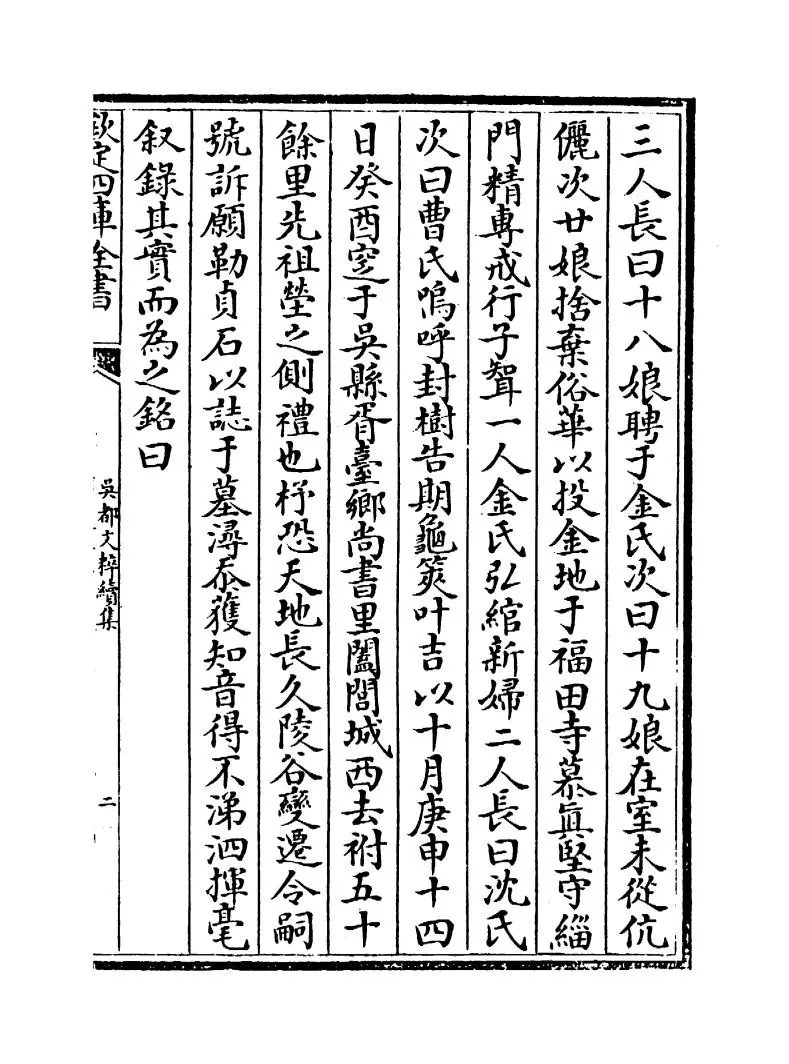 三人長曰十八娘聘于金氏次曰十九娘在室未從伉
儷次廿娘捨棄俗華以投金地于福田寺慕眞堅守緇
門精專戒行子聟一人金氏弘綰新婦二人長曰沈氏
次曰曹氏嗚呼封樹告期龜筴叶吉以十月庚申十四
日癸酉窆于吳縣胥臺鄉尚書里闔閭城西去祔五十
餘里先祖塋之側禮也杍恐天地長久陵谷變遷令嗣
號訴願勒貞石以誌于墓潯忝獲知音得不涕泗揮毫
叙錄其實而為之銘曰
欽定四庫全書
吳都文粹續集
二